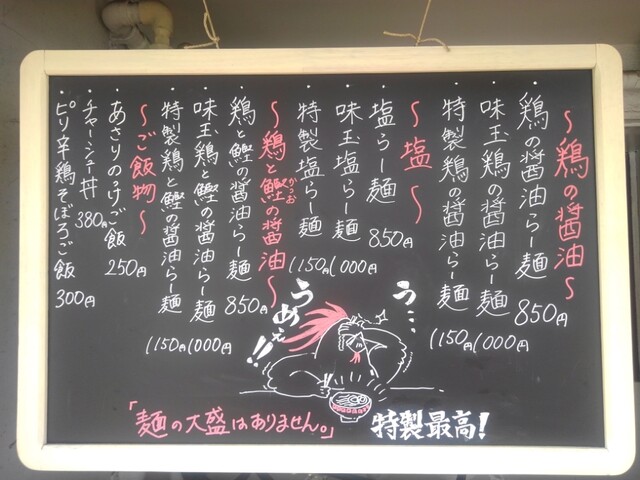 〜鶏の醤油〜
・鶏の醤油らー麺 850円
・味玉鶏の醤油らー麺 1000円
・特製鶏の醤油らー麺 1150円
〜塩〜
・塩らー麺 850円
・味玉塩らー麺 1000円
・特製塩らー麺 1150円
〜鶏と鰹の醤油〜
がつお
・鶏と鰹の醤油らー麺 850円
・味玉鶏と鰹の醤油らー麺 1000円
・特製鶏と鰹の醤油らー麺 1150円
〜ご飯物〜
・あさりのつけご飯 250円
・チャーシュー丼 380円
・ピリ辛鶏そぼろご飯 300円
う…
うめぇ!!
「麺の大盛はありません。」
特製最高!